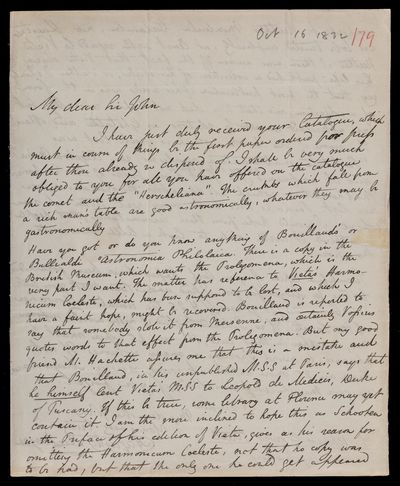 Oct 16 1832
/79
My dear Sir John
I have just duly received your Catalogue, which
must in course of things be the first paper ordered for press
after those already disposed of. I shall be very much
obliged to you for all you have offered on the catalogue
the comet and the "Herscheliana". The crumbs which fall from
a rich man's table are good astronomically, whatever they may be
gastronomically
Have you got or do you know anything of Bouillaud's or
Bullialde Astronomia Philolaica. There is a copy in the
British Museum, which wants the Prolegomena, which is the
very part I want. The matter has reference to Vieta's Harmo-
nicum Coeleste, which has been supposed to be lost, and which I
have a faint hope, might be recovered. Bouillaud is reported to
say that somebody stole it from Mersenne, and certainly Vossius
quotes words to that effect from the Prolegomena. But my good
friend M. Hachette assures me that this is a mistake and
that Bouillaud, in his unpublished MSS at Paris, says that
he himself lent Vieta's MSS to Leopold de Medicis, Duke
of Tuscany. If this be true, some library at Florence may yet
contain it. I am the more inclined to hope this as Schooten
in the Preface of his edition of Vieta, gives as his reason for
omitting the Harmonicum Coeleste, not that no copy was
to be had, but that the only one he could get appeared